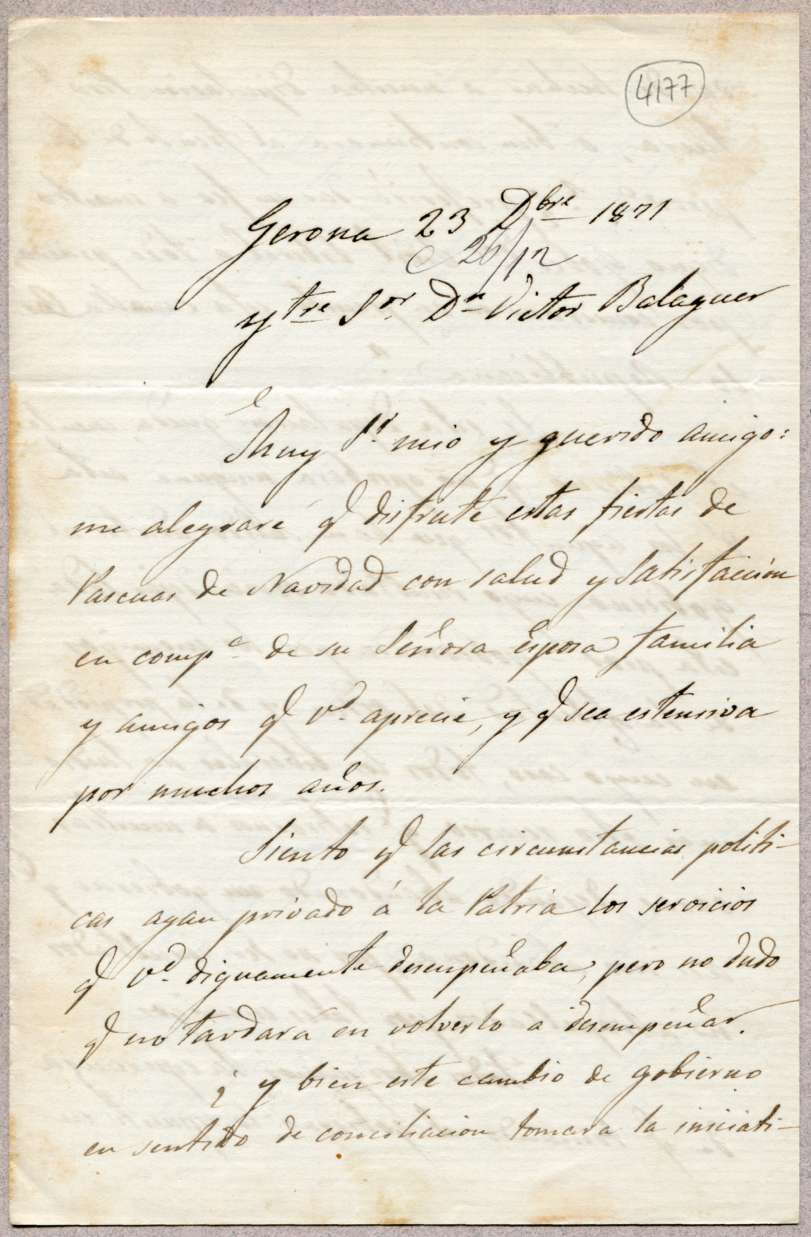 4177
Gerona 23 Dbre 1871
26/12
Ytre Sor Dn Victor Balaguer
Muy Sr mio y querido amigo:
me alegraré q disfrute estas fiestas de
Pascuas de Navidad con salud y satisfaccion
en compa de su Señora Esposa familia
y amigos q Vd aprecie, y q sea estensiva
por muchos años.
Siento q las circunstancias politi-
cas ayan privado á la Patria los servicios
q Vd dignamente desempeñaba, pero no dudo
q no tardará en volverlo a desempeñar.
¿ y bien este cambio de gobierno
en sentido de conciliacion tomara la iniciati-